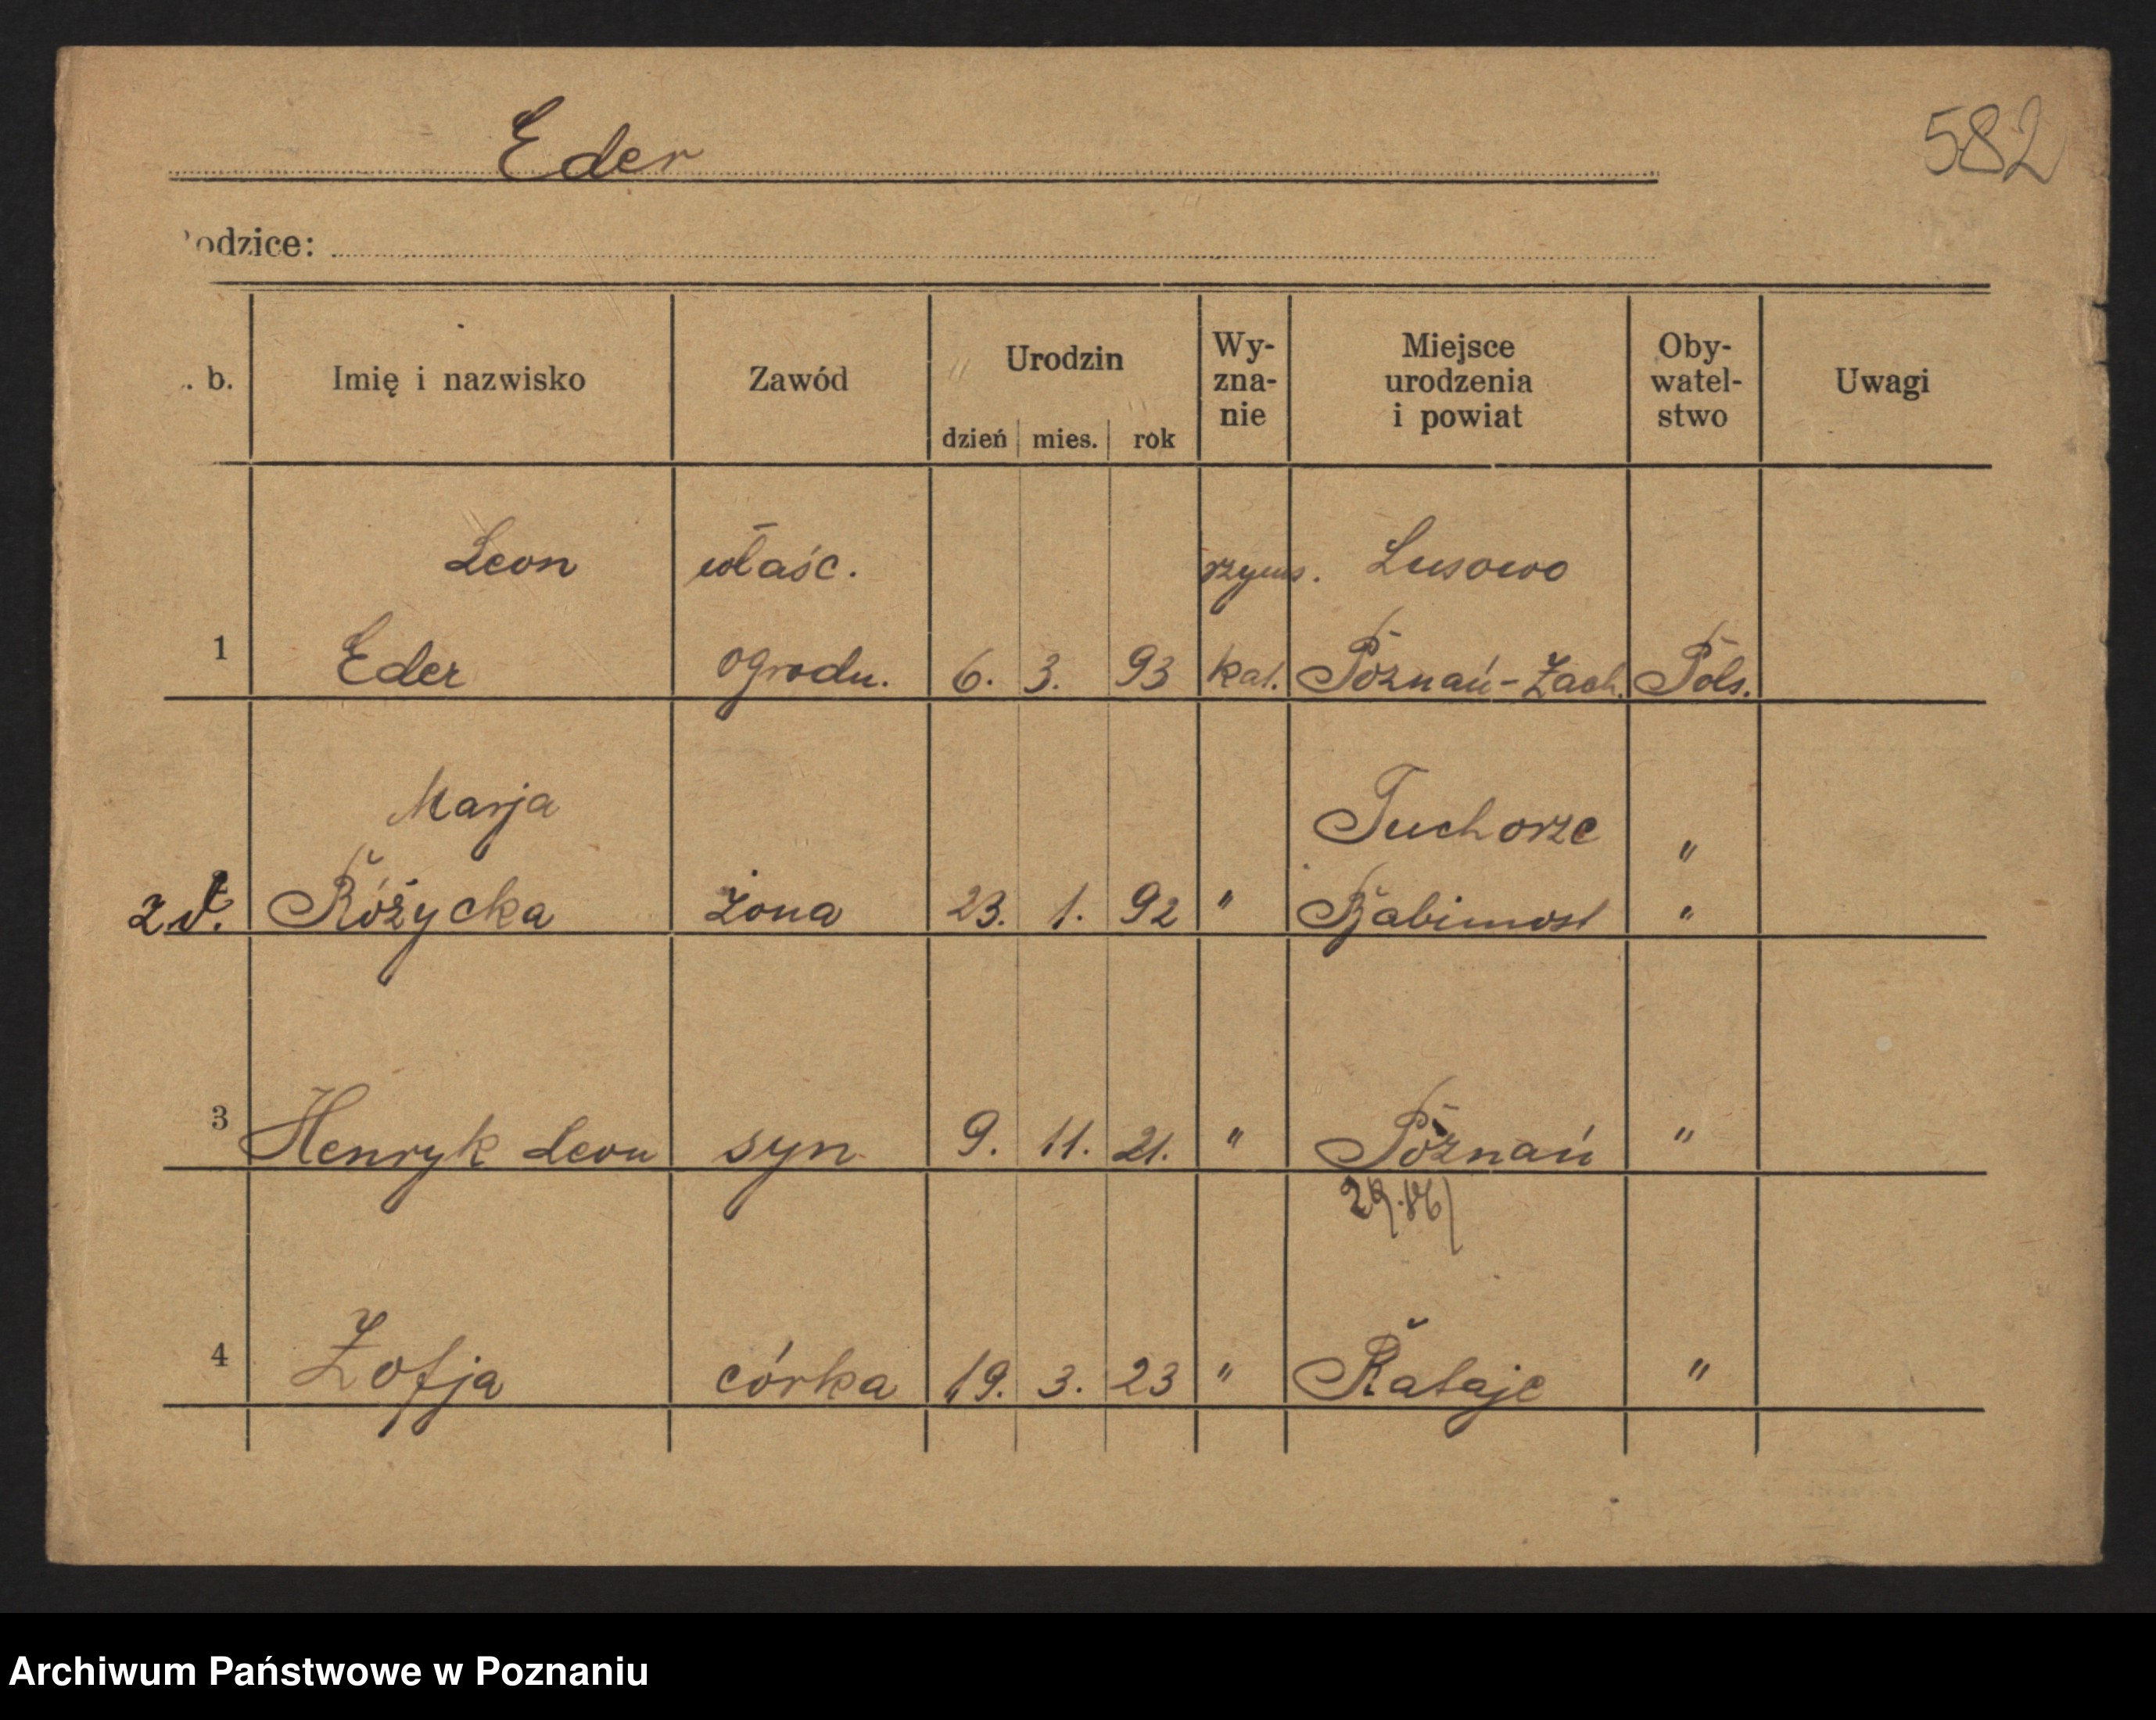 Eder
582
odzice:
. b. Imię i nazwisko Zawód Urodzin dzień mies. rok Wy-zna-nie Miejsce urodzenia i powiat Oby-watel-stwo Uwagi
Leon właśc. rzyms. Lusowo
1 Eder ogrodn. 6. 3. 93 kat. Poznań-Zach. Pols.
Marja Tuchorze "
2 Różycka żona 23. 1. 92 " Babimost "
3 Henryk Leon syn 9. 11. 21. " Poznań "
4 Zofja córka 19. 3. 23 " Rataje "
Archiwum Państwowe w Poznaniu